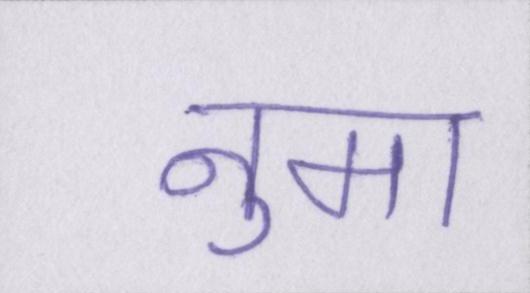 नुमा